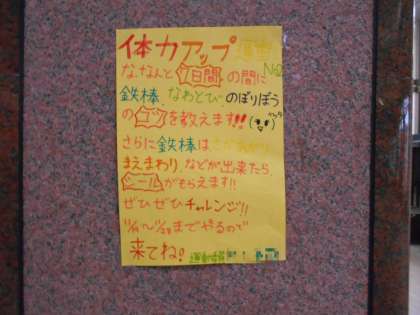 体力アップ運動 No2
な、なんと7日間の間に
鉄棒、なわとび、のぼりぼう
のコツを教えます!!
さらに鉄棒はさかあがり
まえまわり、などが出来たら
シールがもらえます!!
ぜひぜひチャレンジ!!
までやるので
来てね!